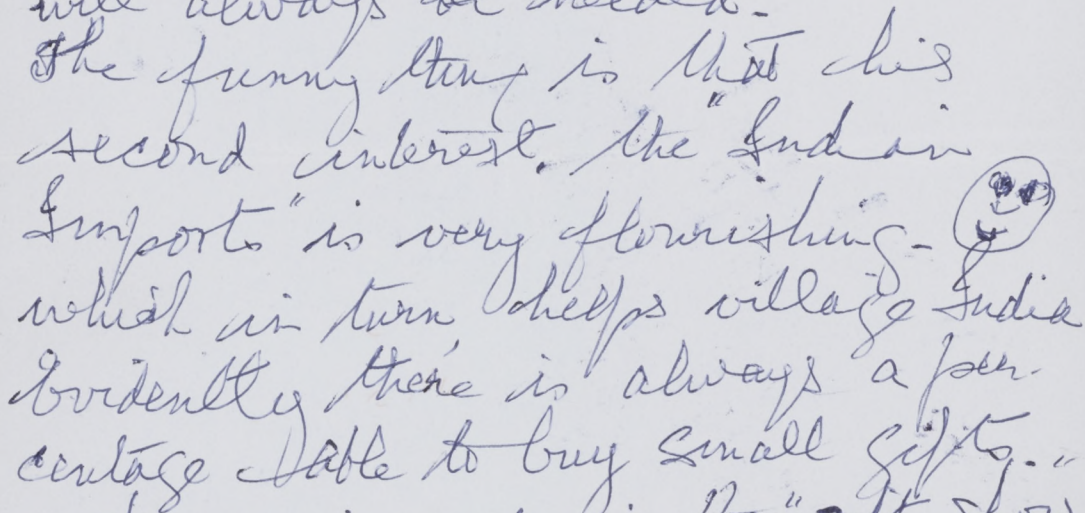 will always be needed.
The funny thing is that his
second interest, the "Indian
Imports" is very flourishing -
which in turn helps village India
Evidently there is always a per-
centage able to buy small gifts."